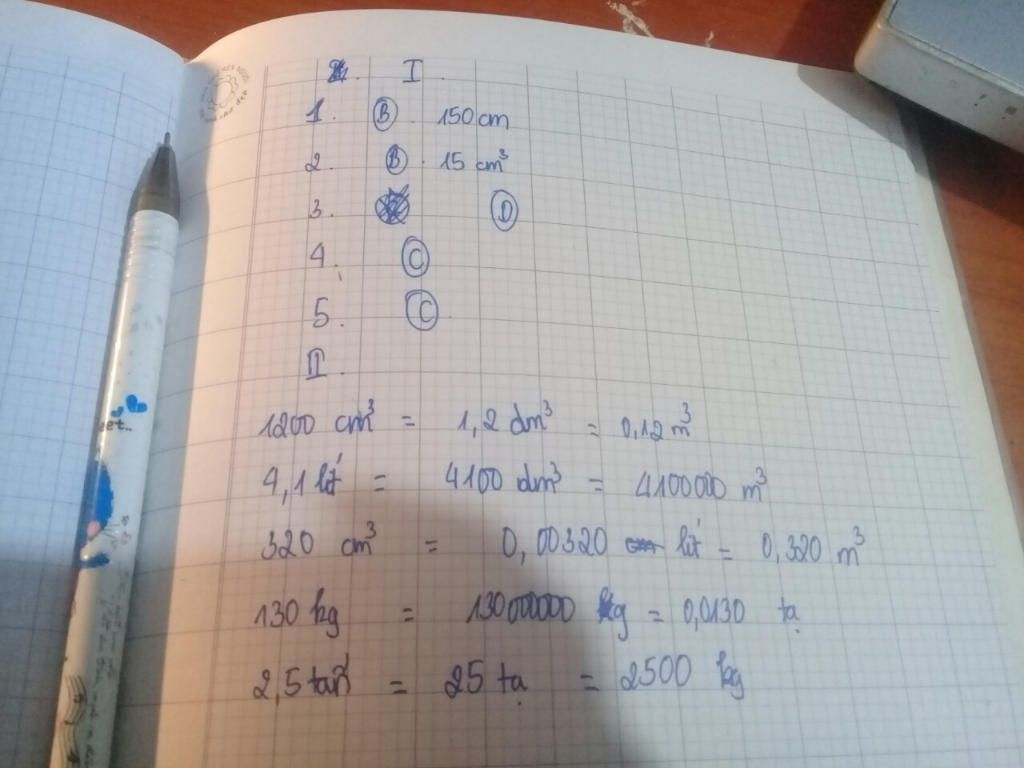 I
1. B. 150 cm
2. B. 15 cm³
3. D
4. C
5. C
II.
1200 cm³ = 1,2 dm³ = 0,12 m³
4,1 lít = 4100 dm³ = 4100000 m³
320 cm³ = 0,00320 lít = 0,320 m³
130 kg = 130000000 g = 0,0130 tạ
2,5 tấn = 25 tạ = 2500 kg